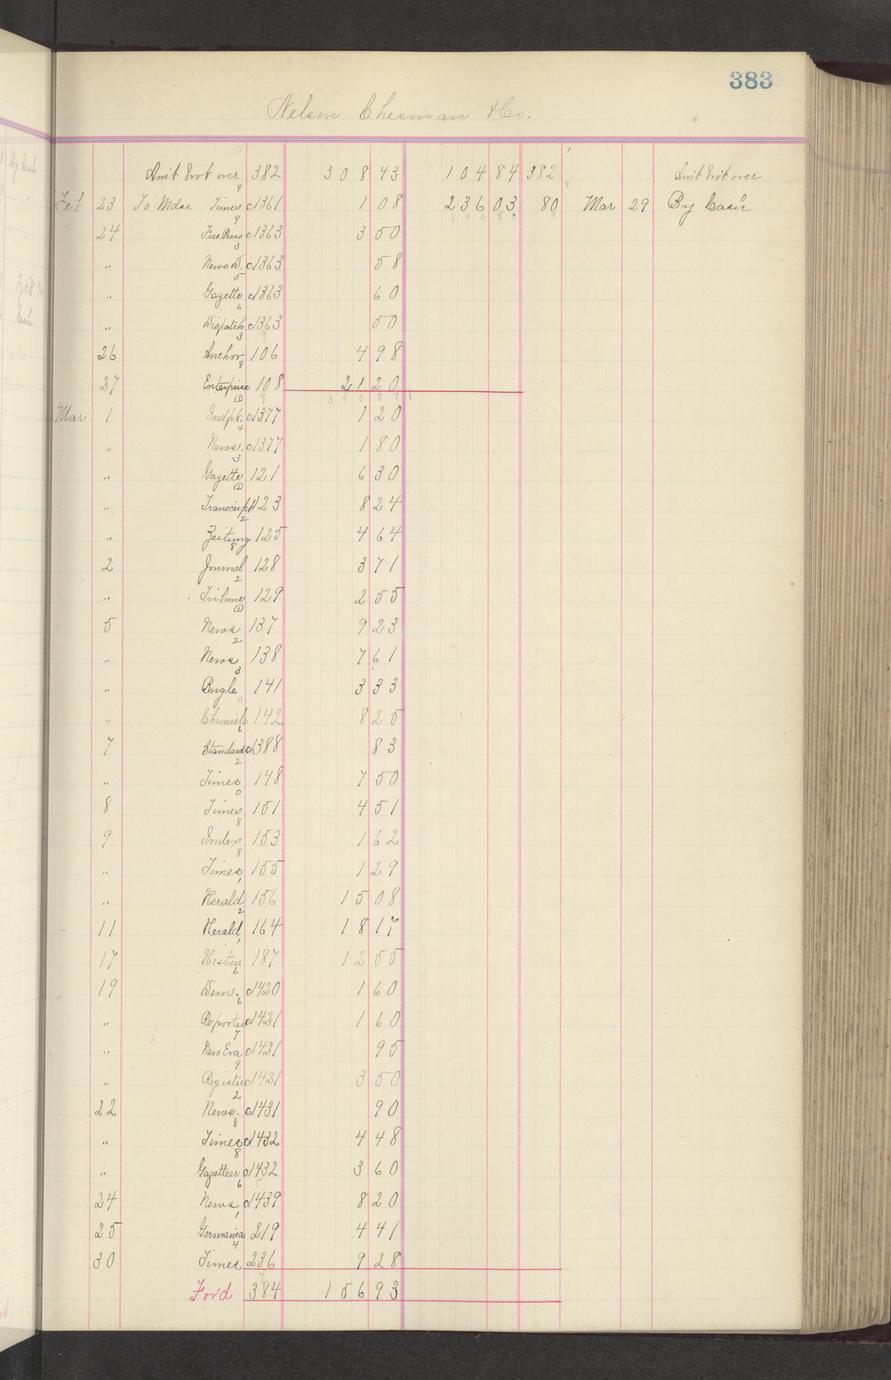 383
Nelson Chesman & Co.
Amt brot over 382 308 43 104 84 382 Amt brot over
Feb 23 To Mdse Times c1361 1 08 236 03 80 Mar 29 By Cash
24 Free Press c1363 3 50
" News D. c1363 58
" Gazette c1363 60
" Dispatch c1363 50
26 Anchor 106 4 98
27 Enterprise 108 21 20
Mar 1 Indpt. c1377 1 20
" News. c1377 1 80
" Gazette 121 6 30
" Transcript 123 8 24
" Zeitung 125 4 64
2 Journal 128 3 71
" Tribune 129 2 55
5 News 137 9 23
" News 138 7 61
" Bugle 141 3 33
" Chronicle 142 8 25
7 Standard c1388 83
" Times 148 7 50
8 Times 151 4 51
9 Index 153 1 62
" Times 155 1 29
" Herald 156 15 08
11 Herald 164 18 17
17 187 12 55
19 Dem. c1420 1 60
" Reporter c1421 1 60
" New Era c1421 95
" Register c1421 3 50
22 News. c1431 90
" Times c1432 4 48
" Gazetteer c1432 3 60
24 News c1439 8 20
25 Germania 219 4 41
30 Times 236 9 28
Ford 384 156 93